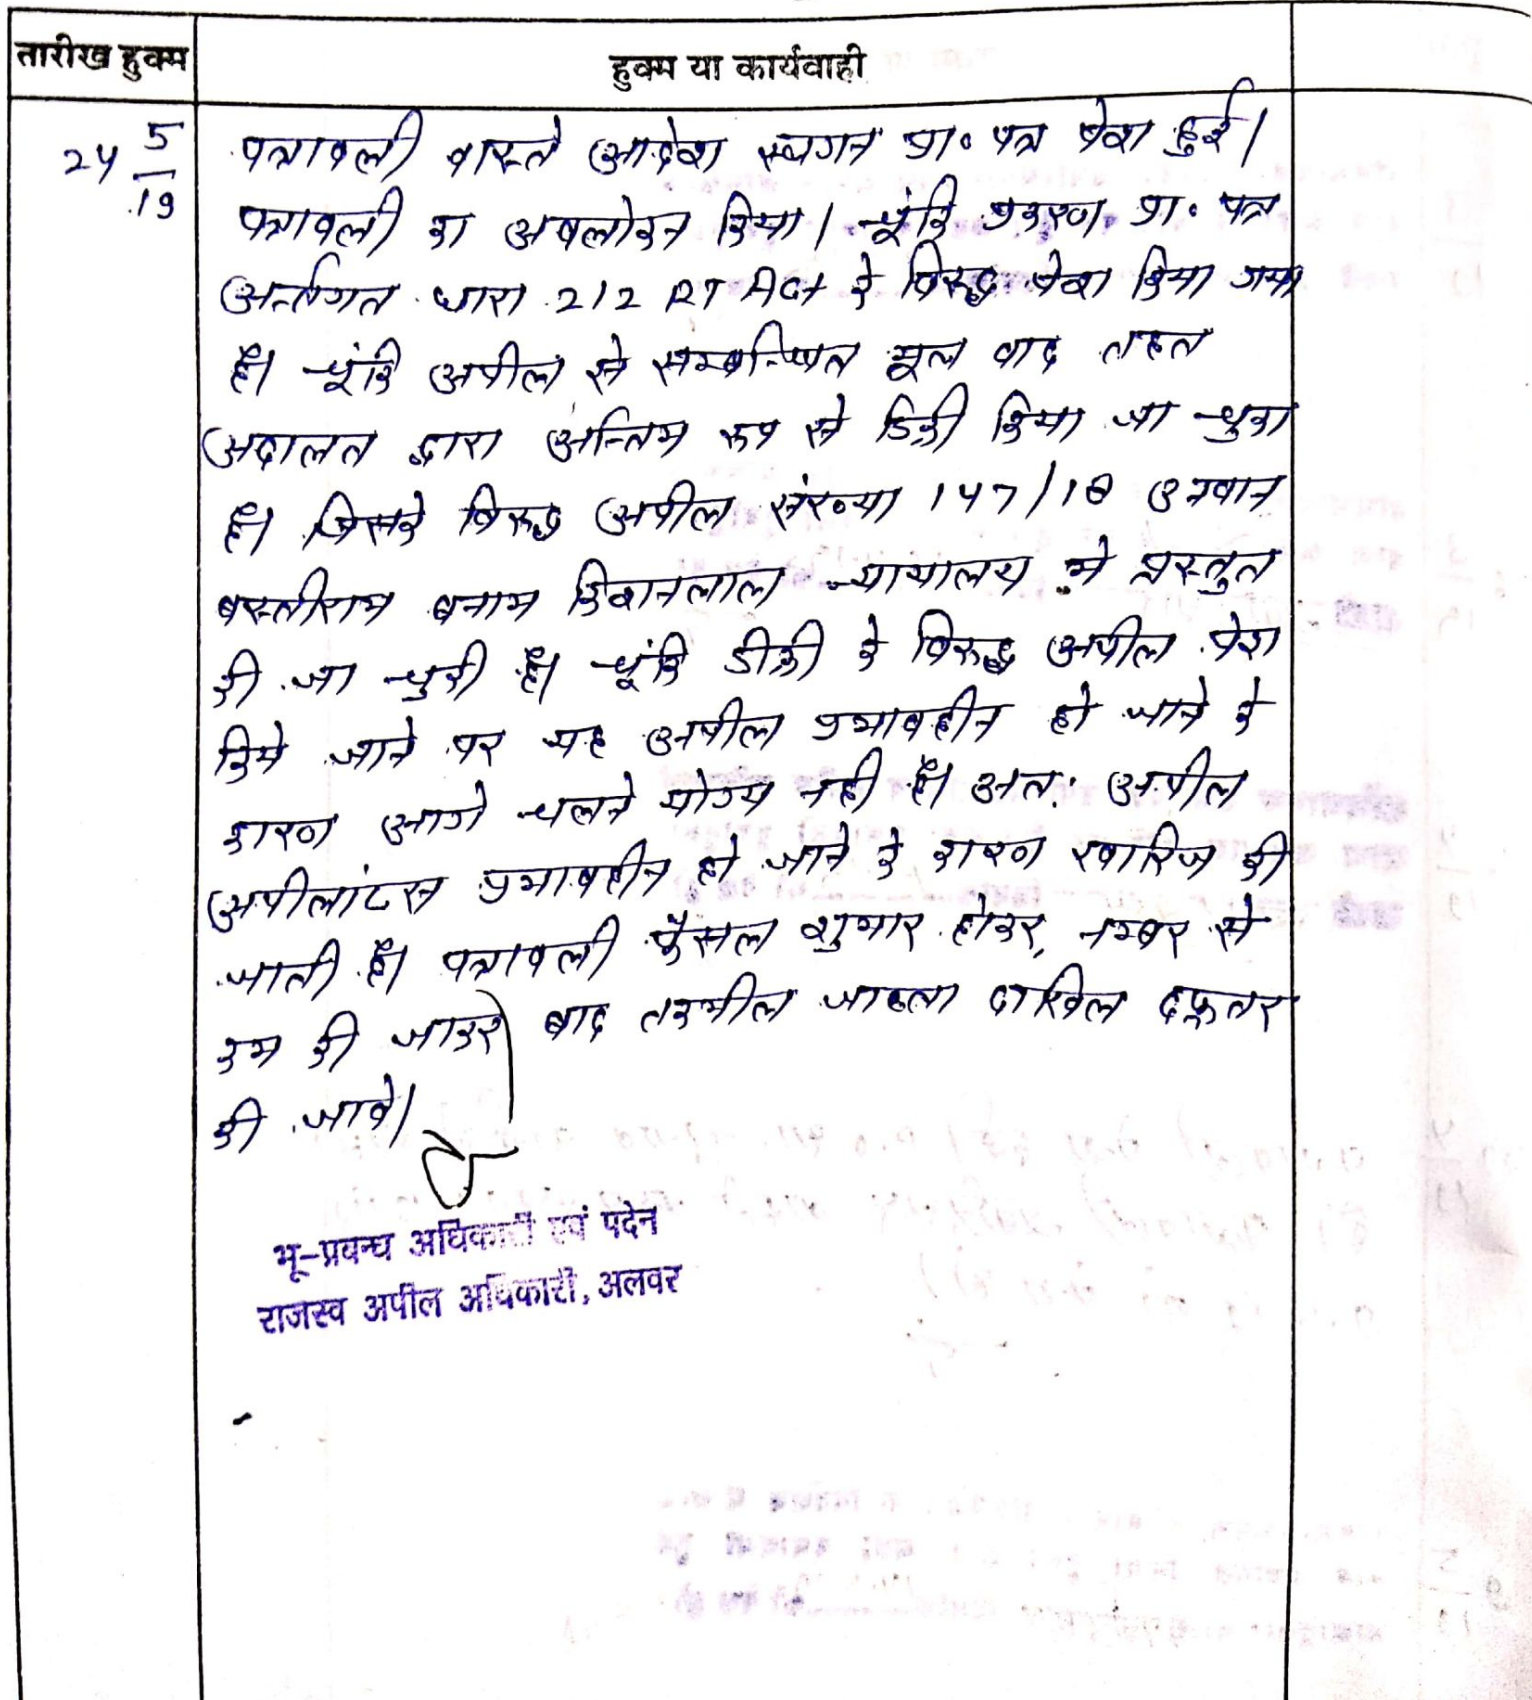 तारीख हुक्म
हुक्म या कार्यवाही
24 5/19
पत्रावली वास्ते आदेश स्थगन प्रा० पत्र पेश हुई।
पत्रावली का अवलोकन किया। चूंकि प्रकरण प्रा० पत्र
अर्न्तगत धारा 212 RT Act के विरूद्ध पेश किया गया
है। चूंकि अपील से सम्बन्धित मूल वाद तहत
अदालत द्वारा अन्तिम रूप से डिक्री किया जा चुका
है। जिसके विरूद्ध अपील संख्या 147/18 उनवान
बस्तीराम बनाम किशनलाल न्यायालय मे प्रस्तुत
की जा चुकी है। चूंकि डीक्री के विरूद्ध अपील पेश
किये जाने पर यह अपील प्रभावहीन हो जाने के
कारण आगे चलने योग्य नही है। अत: अपील
अपीलांटस प्रभावहीन हो जाने के कारण खारिज की
जाती है। पत्रावली फैसल शुमार होकर, नम्बर से
कम की जाकर बाद तकमील जाब्ता दाखिल दफ्तर
की जावे।
भू-प्रबन्ध अधिकारी एवं पदेन
राजस्व अपील अधिकारी, अलवर